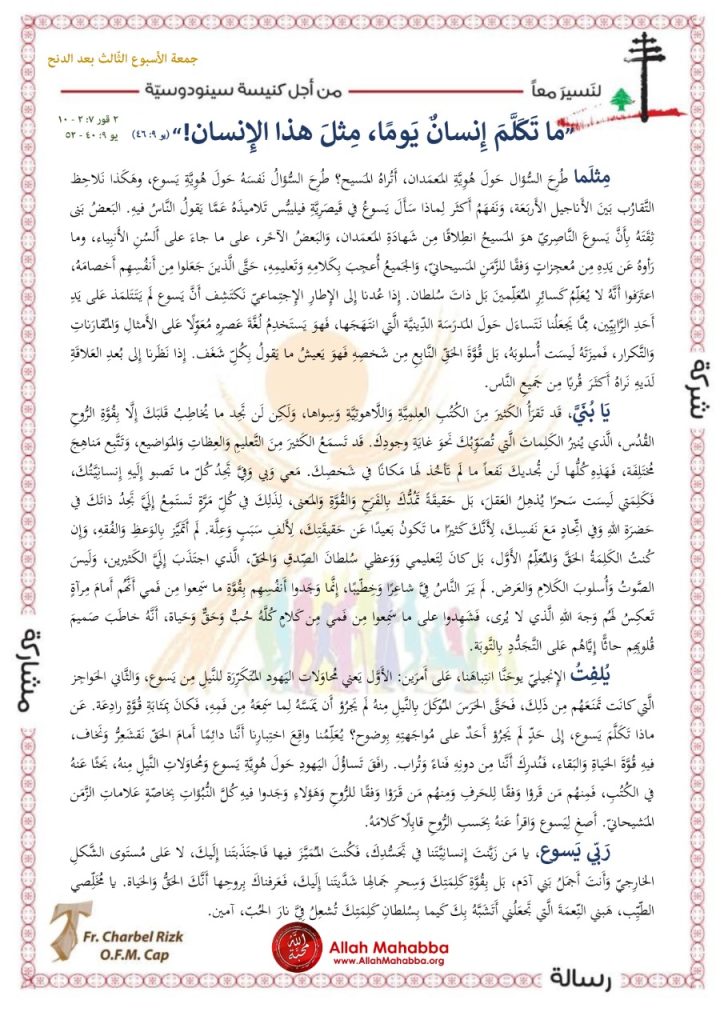 جمعة الأسبوع الثالث بعد الدنح
لنَسيرَ معاً
من أجل كنيسة سينودوسيّة
٢ قور ٧: ٢ - ١٠
يو ٩: ٤٠ - ٥٢
"ما تَكَلَّمَ إِنسانٌ يَومًا، مِثلَ هذا الإِنسان!" (يو ٩: ٤٦)
مِثلَما طُرِحَ السُّؤال حَولَ هُويَّةِ المَعمَدان، أَتُراهُ المَسيح؟ طُرِحَ السُّؤالُ نَفسَهُ حَولَ هُويَّةِ يَسوع، وهَكَذا نَلاحِظ
التَّقارُب بَينَ الأَناجيل الأَربَعة، ونَفهَمُ أَكثَر لِماذا سَأَلَ يَسوعُ في قَيصَريَّةِ فيليبُّس تَلاميذَهُ عَمَّا يَقولُ النَّاسُ فيهِ. البَعضُ بَنى
ثِقَتَهُ بِأَنَّ يَسوعَ النَّاصِريّ هوَ المَسيحُ انطِلاقًا مِن شَهادَةِ المَعمَدان، والبَعضُ الآخَر، على ما جاءَ على أَلسُنِ الأَنبِياء، وما
رَأوهُ عَن يَدِهِ مِن مُعجِزاتٍ وَفقًا لِلزَّمَنِ المَسيحانيّ، والجَميعُ أُعجِبَ بِكَلامِهِ وتَعليمِهِ، حَتَّى الَّذينَ جَعَلوا مِن أَنفُسِهِم أَخصامَهُ،
اعتَرَفوا أَنَّهُ لا يُعَلِّمُ كَسائِرِ المُعَلِّمينَ بَل ذاتَ سُلطان. إذا عُدنا إلى الإِطارِ الإِجتِماعيّ نَكتَشِف أَنَّ يَسوعَ لَم يَتَتَلمَذ عَلى يَدِ
أَحَدِ الرَّابِيّين، مِمَّا يَجعَلُنا نَتَساءَل حَولَ المَدرَسَةِ الدِّينيَّةِ الَّتي انتَهَجَها، فَهوَ يَستَخدِمُ لُغَّةَ عَصرِهِ مُعَوِّلًا عَلى الأَمثالِ والمُقارَناتِ
والتَّكرار، فَميزَتُهُ لَيسَت أُسلوبَهُ، بَل قُوَّةَ الحَقِّ النَّابِعِ مِن شَخصِهِ فَهوَ يَعيشُ ما يَقولُ بِكُلِّ شَغَف. إذا نَظَرنا إلى بُعدِ العَلاقَةِ
لَدَيهِ نَراهُ أَكثَرَ قُربًا مِن جَميعِ النَّاس.
يا بُنَيَّ، قَد تَقرَأُ الكَثيرَ مِنَ الكُتُبِ العِلمِيَّةِ واللَّاهوتِيَّةِ وسِواها، ولَكِن لَن تَجِد ما يُخاطِبُ قَلبَكَ إلَّا بِقُوَّةِ الرُّوحِ
القُدُس، الَّذي يُنيرُ الكَلِماتَ الَّتي تُصَوِّبُكَ نَحوَ غايَةِ وجودِكَ. قَد تَسمَعُ الكَثيرَ مِنَ التَّعليمِ والعِظاتِ والمَواضيع، وتَتَّبِع مَناهِجَ
مُختَلِفَة، فَهَذِهِ كُلُّها لَن تُجديكَ نَفعاً ما لَم تَأخُذ لَها مَكانًا في شَخصِكَ. مَعي وبي وفيَّ تَجِدُ كُلّ ما تَصبو إلَيهِ إنسانِيَّتُكَ،
فَكَلِمَتي لَيسَت سَحرًا يُذهِلُ العَقلَ، بَل حَقيقَةً تَمُدُّكَ بِالفَرَحِ والقُوَّةِ والمَعنى، لِذَلِكَ في كُلِّ مَرَّةٍ تَستَمِعُ إلَيَّ تَجِدُ ذاتَكَ في
حَضرَةِ اللهِ وفي اتِّحادٍ مَعَ نَفسِكَ، لِأَنَّكَ كَثيرًا ما تَكونُ بَعيدًا عَن حَقيقَتِكَ، لِأَلفِ سَبَبٍ وعِلَّة. لَم أَتَمَيَّز بِالوَعظِ والفُقهِ، وإن
كُنتُ الكَلِمَةُ الحَقَّ والمُعَلِّمُ الأوَّل، بَل كانَ لِتَعليمي ووَعظي سُلطانَ الصِّدقِ والحَقّ، الَّذي اجتَذَبَ إلَيَّ الكَثيرين، ولَيسَ
الصَّوتُ وأُسلوبَ الكَلامِ والعَرض. لَم يَرَ النَّاسُ فيَّ شاعِرًا وخَطِيبًا، إنَّما وَجَدوا أَنفُسِهِم بِقُوَّةِ ما سَمِعوا مِن فَمي أَنَّهُم أَمامَ مِرآةٍ
تَعكِسُ لَهُم وَجهَ اللهِ الَّذي لا يُرى، فَشَهِدوا على ما سَمِعوا مِن فَمي مِن كَلامٍ كُلُّهُ حُبٌّ وحَقٌّ وحَياة، أَنَّهُ خاطَبَ صَميمَ
قُلوبِهِم حاثًّا إيَّاهُم عَلى التَّجَدُّدِ بِالتَّوبَة.
يُلفِتُ الإنجيليّ يوحَنَّا انتِباهَنا، عَلى أَمرَين: الأوَّل يَعني مُحاوَلات اليَهود المُتَكَرِّرَة لِلنَّيلِ مِن يَسوع، والثَّاني الحَواجِز
الَّتي كانَت تَمنَعَهُم مِن ذَلِكَ، فَحتَّى الحَرَسَ المُوَكَّلِ بِالنَّيلِ مِنهُ لَم يَجرُؤ أن يَمَسَّهُ لِما سَمِعَهُ مِن فَمِهِ، فَكانَ بِمَثابَةِ قُوَّةٍ رادِعَة. عَن
ماذا تَكَلَّمَ يَسوع، إلى حَدٍّ لَم يَجرُؤ أَحَدٌ على مُواجَهَتِهِ بِوضوح؟ يُعَلِّمُنا واقِعَ اختِبارِنا أَنَّنا دائِمًا أَمامَ الحَقّ نَقشَعِرُّ ونَخاف،
فيهِ قُوَّةَ الحَياةِ والبَقاء، فَنُدرِكَ أَنَّنا مِن دونِهِ فَناءً وتُراب. رافَقَ تَساؤُلَ اليَهودِ حَولَ هُويَّةِ يَسوع ومُحاوَلاتِ النَّيلِ مِنهُ، بَحثًا عَنهُ
في الكُتُب، فَمِنهُم مَن قَرَوُا وَفقًا لِلحَرفِ ومِنهُم مَن قَرَوُا وَفقًا لِلرُّوحِ وهَؤلاءِ وَجَدوا فيهِ كُلَّ النُّبُؤاتِ بِخاصَّةٍ عَلاماتِ الزَّمَنِ
المَشيحانيّ. أَصغِ لِيَسوع واقرأ عَنهُ بِحَسبِ الرُّوحِ قابِلًا كَلامَهُ.
رَبّي يَسوع، يا مَن زَيَّنتَ إنسانِيَّتَنا في تَجَسُّدِكَ، فَكُنتَ المُمَيَّزَ فيها فَاجتَذَبتَنا إلَيكَ، لا عَلى مُستَوى الشَّكلِ
الخارِجيّ وأَنتَ أَجمَلُ بَني آدَم، بَل بِقُوَّةِ كَلِمَتِكَ وسِحرِ جَمالِها شَدَّيتَنا إلَيكَ، فَعَرِفناكَ بِروحِها أَنَّكَ الحَقُّ والحَياة. يا مُخَلِّصي
الطَّيِّب، هَبني النِّعمَةَ الَّتي تَجعَلُني أَتَشَبَّهُ بِكَ كَيما بِسُلطانِ كَلِمَتِكَ تُشعِلُ فيَّ نارَ الحُبّ، آمين.
شركة
مشاركة
رسالة
Fr. Charbel Rizk
O.F.M. Cap
الله محبة
Allah Mahabba
www.AllahMahabba.org